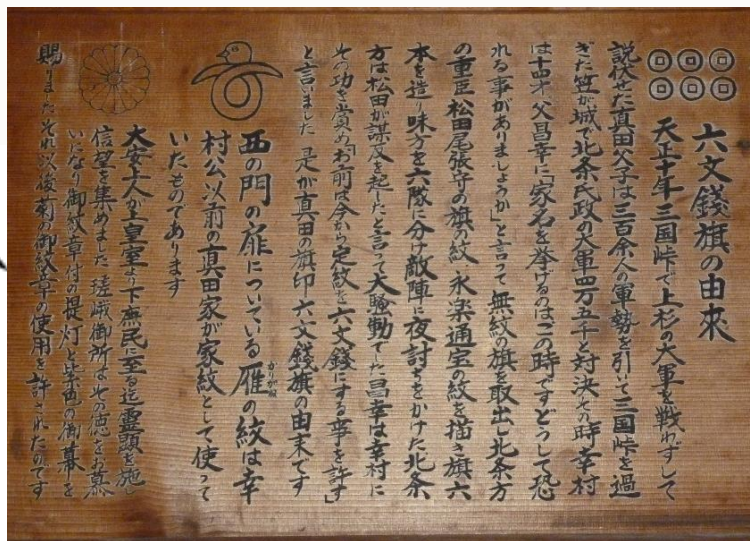 六文銭旗の由来
天正十年三国峠で上杉の大軍を戦わずして
説伏せた真田父子は三百余人の軍勢を引いて三国峠を過
ぎた笠が城で北条氏政の大軍四万五千と対決その時幸村
は十四才父昌幸に「家名を挙げるのはこの時ですどうして恐
れる事がありましょうか」と言って無紋の旗を取出し北条方
の重臣松田尾張守の旗の紋、永楽通宝の紋を描き旗六
本を造り味方を六隊に分け敵陣に夜討ちをかけた北条
方は松田が謀反を起したと言って大騒動でした昌幸は幸村に
その功を賞め「お前は今から定紋を六文銭にする事を許す」
と言いました 是が真田の旗印六文銭旗の由来です
西の門の扉についている雁の紋は幸
かりがね
村公以前の真田家が家紋として使って
いたものであります
大安上人が上皇室より下庶民に至る迄霊顕を施し
信望を集めました 嵯峨御所はその徳をお慕
いになり御紋章付の提灯と紫色の御幕を
賜りましたそれ以後菊の御紋章の使用を許されたのです